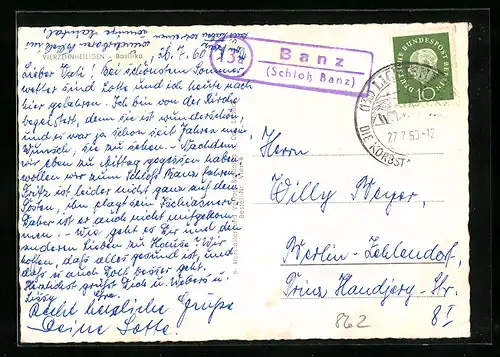 VIERZEHNHEILIGEN - Basilika
26.7.60
Lieber Vati! Bei schönstem Sommer-
wetter sind Lotte und ich heute nach
hier gefahren. Ich bin von der Kirche
begeistert, denn sie ist wunderschön,
und es war ja schon seit Jahren mein
Wunsch, sie zu sehen. - Nachdem
wir eben zu Mittag gegessen haben,
wollen wir zum Schloß Banz fahren.
Fritz ist leider nicht ganz auf dem
Posten, ihn plagt sein Ischiasnerv.
Daher ist er auch nicht mitgekom-
men. - Wie geht es Dir und den
anderen Lieben zu Hause? Wir
hoffen, daß alles gesund ist, und
daß es auch besser geht.
Herzlichst grüßt Dich u. Webers u.
Recht herzliche Grüße
Deine Lotte.
(13a)
Banz
(Schloß Banz)
DEUTSCHE BUNDESPOST BERLIN
10
(13a) LICH
27.7.60-12
DIE KORBST
Herrn
Willy Meyer,
Berlin-Zehlendorf,
Prinz Handjery-Str.
8I
862